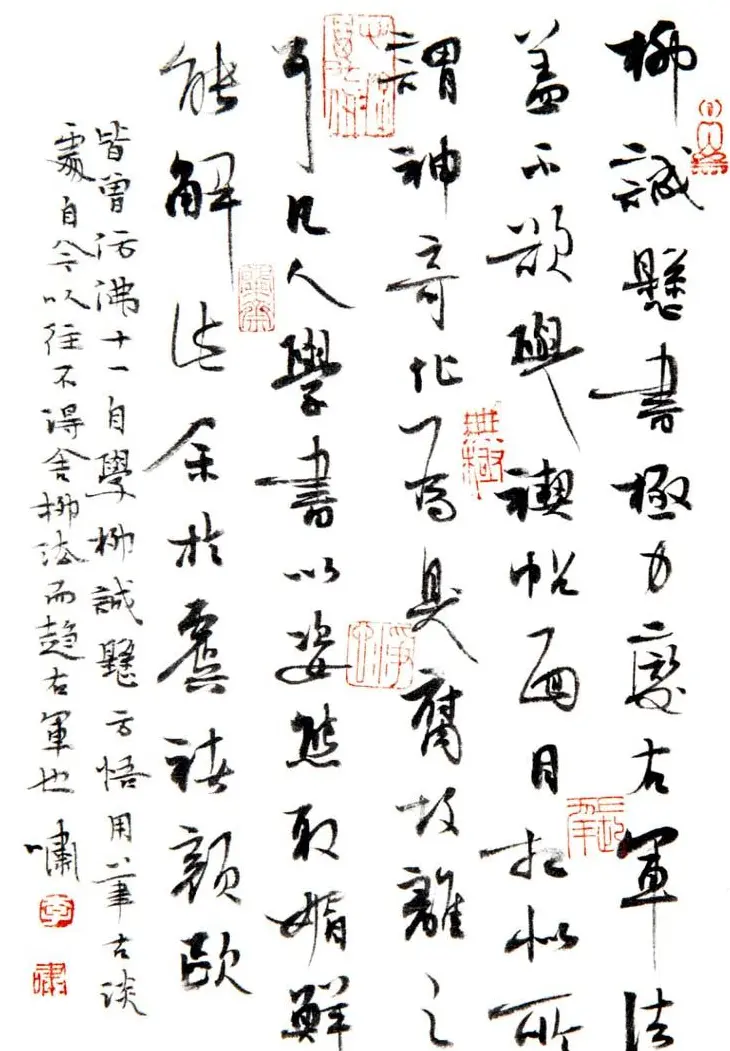 柳誠懸書極力變右軍法
蓋不欲與禊帖面目相似所
謂神奇化為臭腐故離之
耳凡人學書以姿態取媚鮮
能解此余於虞褚顏歐
皆曾仿佛十一自學柳誠懸方悟用筆古淡
處自今以往不得舍柳法而趨右軍也 嘯
無極
嘯